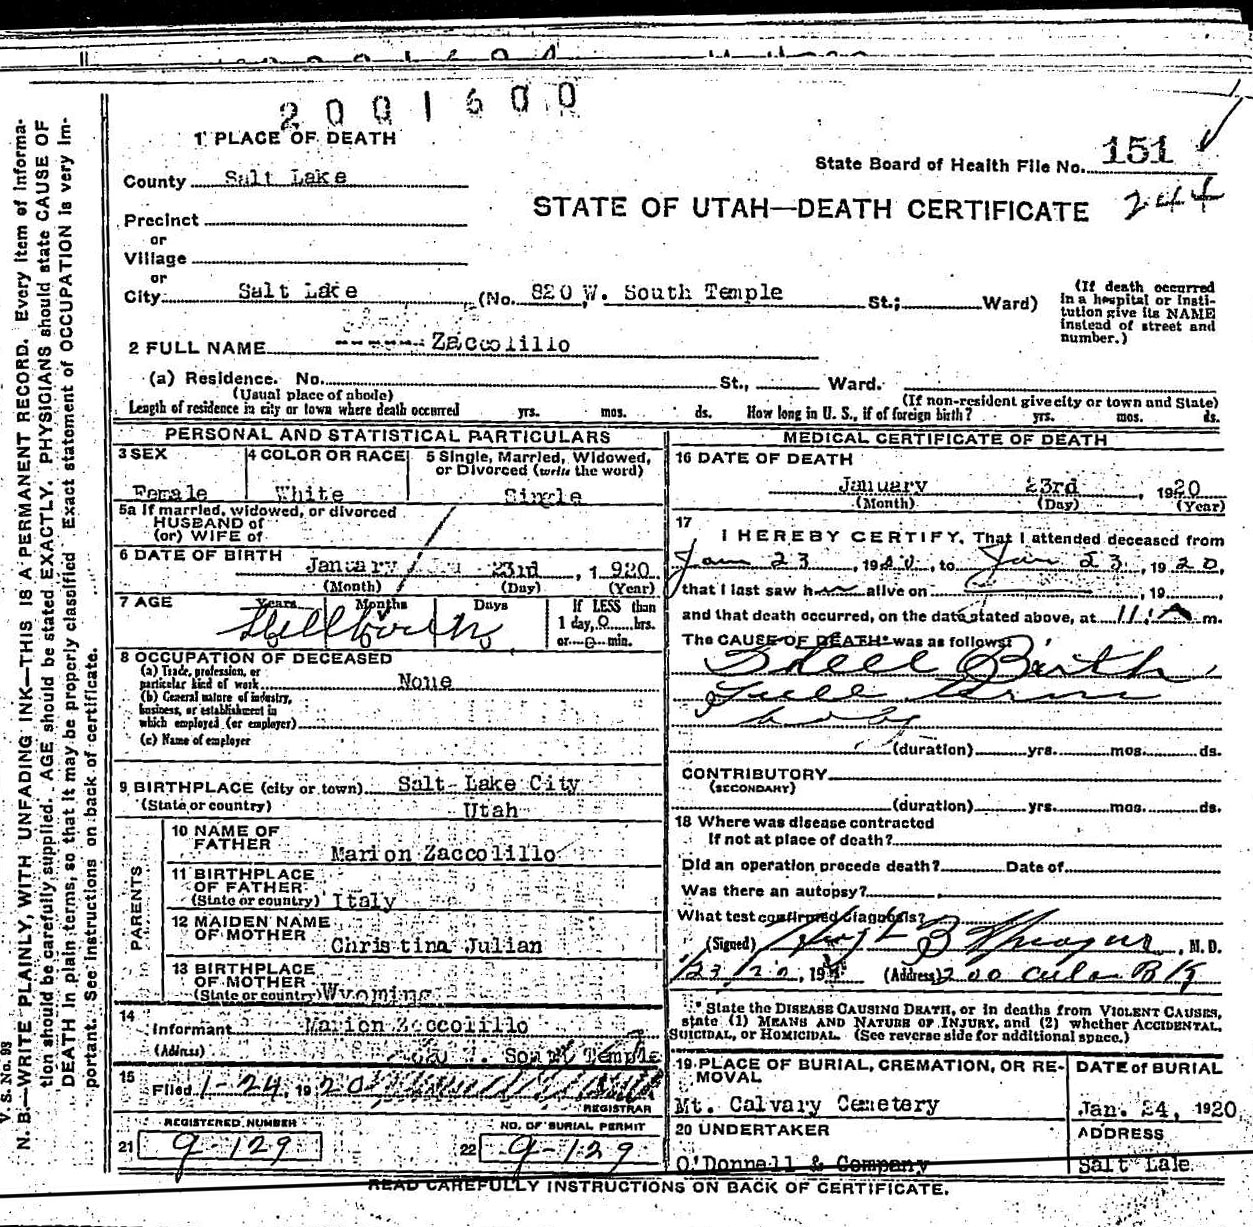 2001600
1 PLACE OF DEATH
State Board of Health File No. 151
County Salt Lake
244
STATE OF UTAH—DEATH CERTIFICATE
Precinct
or
Village
or
City Salt Lake (No. 820 W. South Temple St.; Ward)
(If death occurred in a hospital or institution give its NAME instead of street and number.)
2 FULL NAME ------- Zaccolillo
(a) Residence. No. St., Ward.
(Usual place of abode) (If non-resident give city or town and State)
Length of residence in city or town where death occurred yrs. mos. ds. How long in U. S., if of foreign birth? yrs. mos. ds.
PERSONAL AND STATISTICAL PARTICULARS
3 SEX 4 COLOR OR RACE 5 Single, Married, Widowed,
or Divorced (write the word)
Female White Single
5a If married, widowed, or divorced
HUSBAND of
(or) WIFE of
6 DATE OF BIRTH January 23rd, 1920
(Month) (Day) (Year)
7 AGE Years Months Days If LESS than
1 day, 0 hrs.
or 0 min.
Stillborn
8 OCCUPATION OF DECEASED
(a) Trade, profession, or
particular kind of work None
(b) General nature of industry,
business, or establishment in
which employed (or employer)
(c) Name of employer
9 BIRTHPLACE (city or town) Salt Lake City
(State or country) Utah
PARENTS
10 NAME OF
FATHER Marion Zaccolillo
11 BIRTHPLACE
OF FATHER
(State or country) Italy
12 MAIDEN NAME
OF MOTHER Christina Julian
13 BIRTHPLACE
OF MOTHER
(State or country) Wyoming
14
Informant Marion Zaccolillo
(Address) South Temple
15
Filed 1-24, 1920
REGISTRAR
REGISTERED NUMBER NO. OF BURIAL PERMIT
21 9-129 22 9-129
MEDICAL CERTIFICATE OF DEATH
16 DATE OF DEATH
January 23rd, 1920
(Month) (Day) (Year)
17
I HEREBY CERTIFY, That I attended deceased from
Jan 23, 1920, to Jan 23, 1920,
that I last saw h alive on , 19 ,
and that death occurred, on the date stated above, at 11: A m.
The CAUSE OF DEATH* was as follows:
Still Birth
Full Term
baby
(duration) yrs. mos. ds.
CONTRIBUTORY
(SECONDARY)
(duration) yrs. mos. ds.
18 Where was disease contracted
If not at place of death?
Did an operation precede death? Date of
Was there an autopsy?
What test confirmed diagnosis?
(Signed) B , M. D.
1/23/20, 19 (Address) 200
* State the DISEASE CAUSING DEATH, or in deaths from VIOLENT CAUSES,
state (1) MEANS AND NATURE OF INJURY, and (2) whether ACCIDENTAL,
SUICIDAL, OR HOMICIDAL. (See reverse side for additional space.)
19 PLACE OF BURIAL, CREMATION, OR RE-
MOVAL DATE of BURIAL
Mt. Calvary Cemetery Jan. 24, 1920
20 UNDERTAKER ADDRESS
O'Donnell & Company Salt Lake
READ CAREFULLY INSTRUCTIONS ON BACK OF CERTIFICATE.
V. S. No. 93
N. B.—WRITE PLAINLY, WITH UNFADING INK—THIS IS A PERMANENT RECORD. Every item of informa-
tion should be carefully supplied. AGE should be stated EXACTLY. PHYSICIANS should state CAUSE OF
DEATH in plain terms, so that it may be properly classified. Exact statement of OCCUPATION is very im-
portant. See instructions on back of certificate.